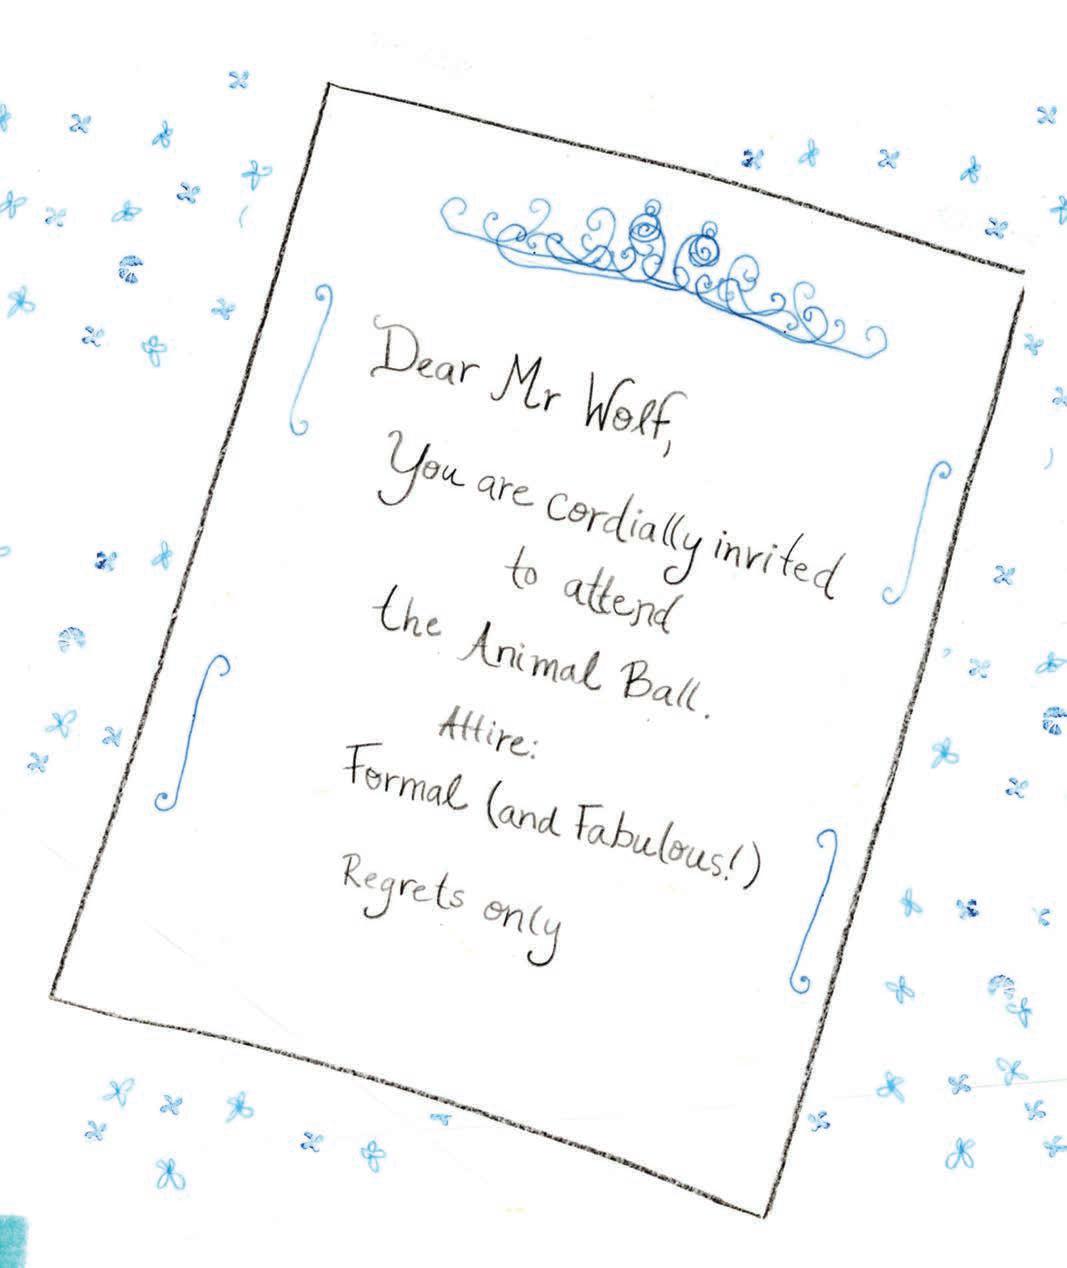 Dear Mr Wolf,
You are cordially invited
to attend
the Animal Ball.
Attire:
Formal (and Fabulous!)
Regrets only